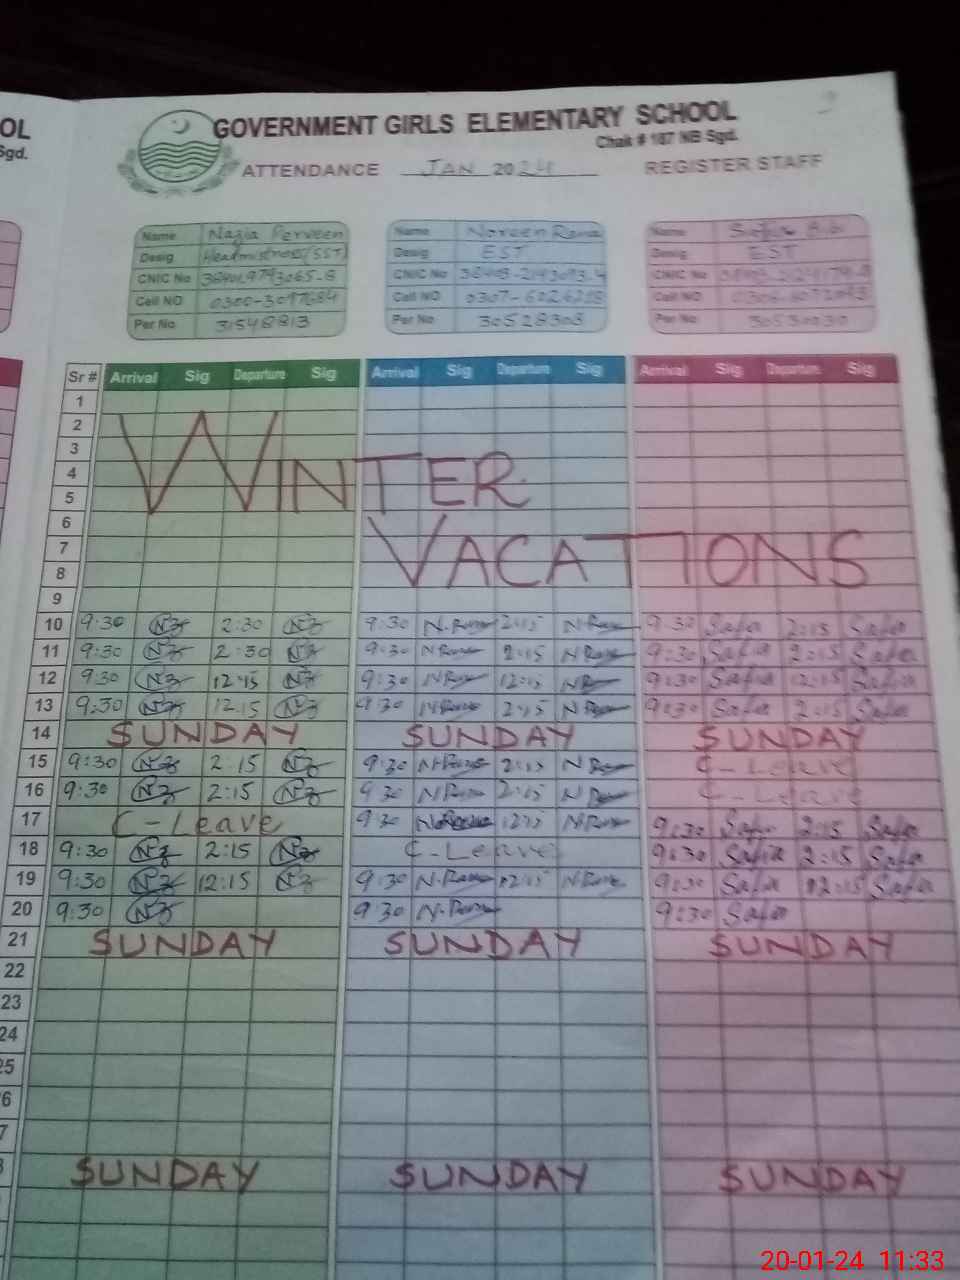 OL
GOVERNMENT GIRLS ELEMENTARY SCHOOL
Sgd.
Chak # 187 NB Sgd.
ATTENDANCE JAN 2024 REGISTER STAFF
Name Nazia Perveen Name Noreen Rana Name
Desig Headmistress (SST) Desig EST Desig EST
CNIC No CNIC No CNIC No
Cell NO Cell NO Cell NO
Per No 31548813 Per No 30528308 Per No
Sr # Arrival Sig Departure Sig Arrival Sig Departure Sig Arrival Sig Departure Sig
1
2
3
4
WINTER
5
6
7
VACATIONS
8
9
10 9:30 Nz 2:30 Nz 9:30 N.Rana 2:15 N.Rana 9:30 Safia 2:15 Safia
11 9:30 Nz 2:30 Nz 9:30 N.Rana 2:15 N.Rana 9:30 Safia 2:15 Safia
12 9:30 Nz 12:15 Nz 9:30 N.Rana 12:15 N.Rana 9:30 Safia 12:15 Safia
13 9:30 Nz 12:15 Nz 9:30 N.Rana 2:15 N.Rana 9:30 Safia 2:15 Safia
14 SUNDAY SUNDAY SUNDAY
15 9:30 Nz 2:15 Nz 9:30 N.Rana 2:15 N.Rana C-Leave
16 9:30 Nz 2:15 Nz 9:30 N.Rana 2:15 N.Rana C-Leave
17 C-Leave 9:30 N.Rana N.Rana 9:30 Safia 2:15 Safia
18 9:30 Nz 2:15 Nz C-Leave 9:30 Safia 2:15 Safia
19 9:30 Nz 12:15 Nz 9:30 N.Rana 12:15 N.Rana 9:30 Safia 12:15 Safia
20 9:30 Nz 9:30 N.Rana 9:30 Safia
21 SUNDAY SUNDAY SUNDAY
22
23
24
25
6
7
SUNDAY SUNDAY SUNDAY
20-01-24 11:33